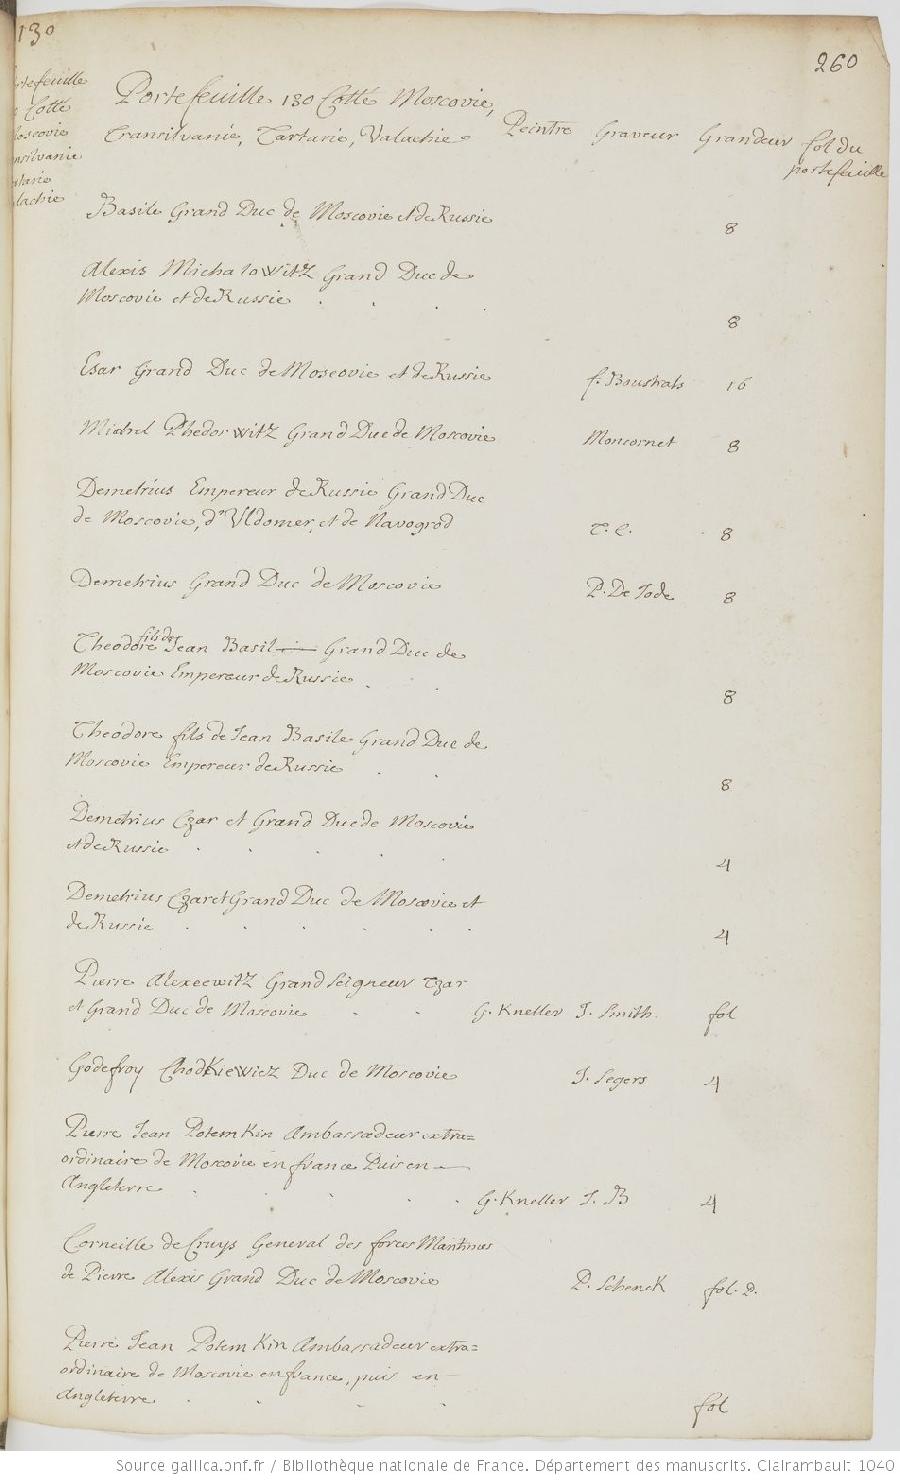 130
260
Portefeuille 130 Cotté Moscovie,
Transilvanie, Tartarie, Valachie
Peintre Graveur Grandeur fol du
portefeuille
Cotté
Basile Grand Duc de Moscovie et de Russie
8
Alexis Michalowitz Grand Duc de
Moscovie et de Russie . . .
8
Esar Grand Duc de Moscovie et de Russie f. Boushats 16
Michel Phedorwitz Grand Duc de Moscovie Moncornet 8
Demetrius Empereur de Russie Grand Duc
de Moscovie, d'Uldomer, et de Navogrod T. L. 8
Demetrius Grand Duc de Moscovie P. De Jode 8
Theodore fils de Jean Basil Grand Duc de
Moscovie Empereur de Russie . .
8
Theodore fils de Jean Basile Grand Duc de
Moscovie Empereur de Russie . .
8
Demetrius Czar et Grand Duc de Moscovie
et de Russie . . . . .
4
Demetrius Czar et Grand Duc de Moscovie et
de Russie . . . . . .
4
Pierre Alexeewitz Grand Seigneur Tzar
et Grand Duc de Moscovie . . G. Kneller J. Smith fol
Godefroy Chodkiewicz Duc de Moscovie J. Segers 4
Pierre Jean Potemkin Ambassadeur extra=
ordinaire de Moscovie en france Puis en
Angleterre . . . . . G. Kneller J. B 4
Corneille de Cruys General des forces Maritimes
de Pierre Alexis Grand Duc de Moscovie P. Schenck fol. P.
Pierre Jean Potemkin Ambassadeur extra=
ordinaire de Moscovie en france, puis en
Angleterre . . . . fol
Source gallica.bnf.fr / Bibliothèque nationale de France. Département des manuscrits. Clairambault 1040